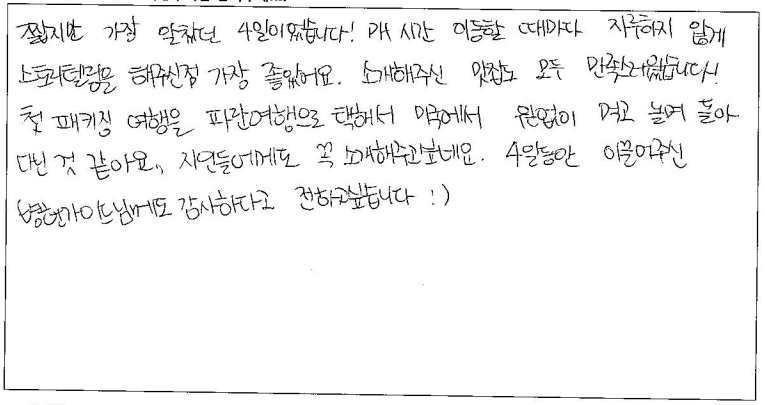 짧지만 가장 알찼던 4일이었습니다! 매 시간 이동할 때마다 지루하지 않게
스토리텔링을 해주신점 가장 좋았어요. 소개해주신 맛집도 모두 만족스러웠습니다!
첫 패키징 여행을 파란여행으로 택해서 미국에서 원없이 먹고 놀며 돌아
다닌 것 같아요. 지인들에게도 꼭 소개해주고싶네요. 4일동안 이끌어주신
병헌가이드님께도 감사하다고 전하고싶습니다 :)